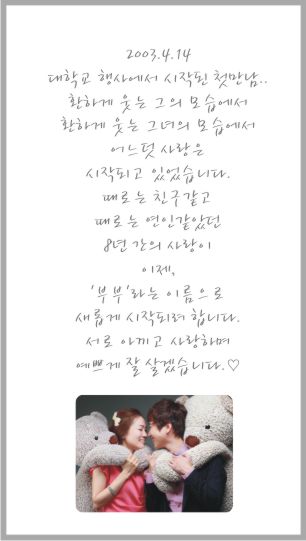 2003.4.14
대학교 행사에서 시작된 첫만남..
환하게 웃는 그의 모습에서
환하게 웃는 그녀의 모습에서
어느덧 사랑은
시작되고 있었습니다.
때로는 친구같고
때로는 연인같았던
8년 간의 사랑이
이제,
'부부'라는 이름으로
새롭게 시작되려 합니다.
서로 아끼고 사랑하며
예쁘게 잘 살겠습니다.♡